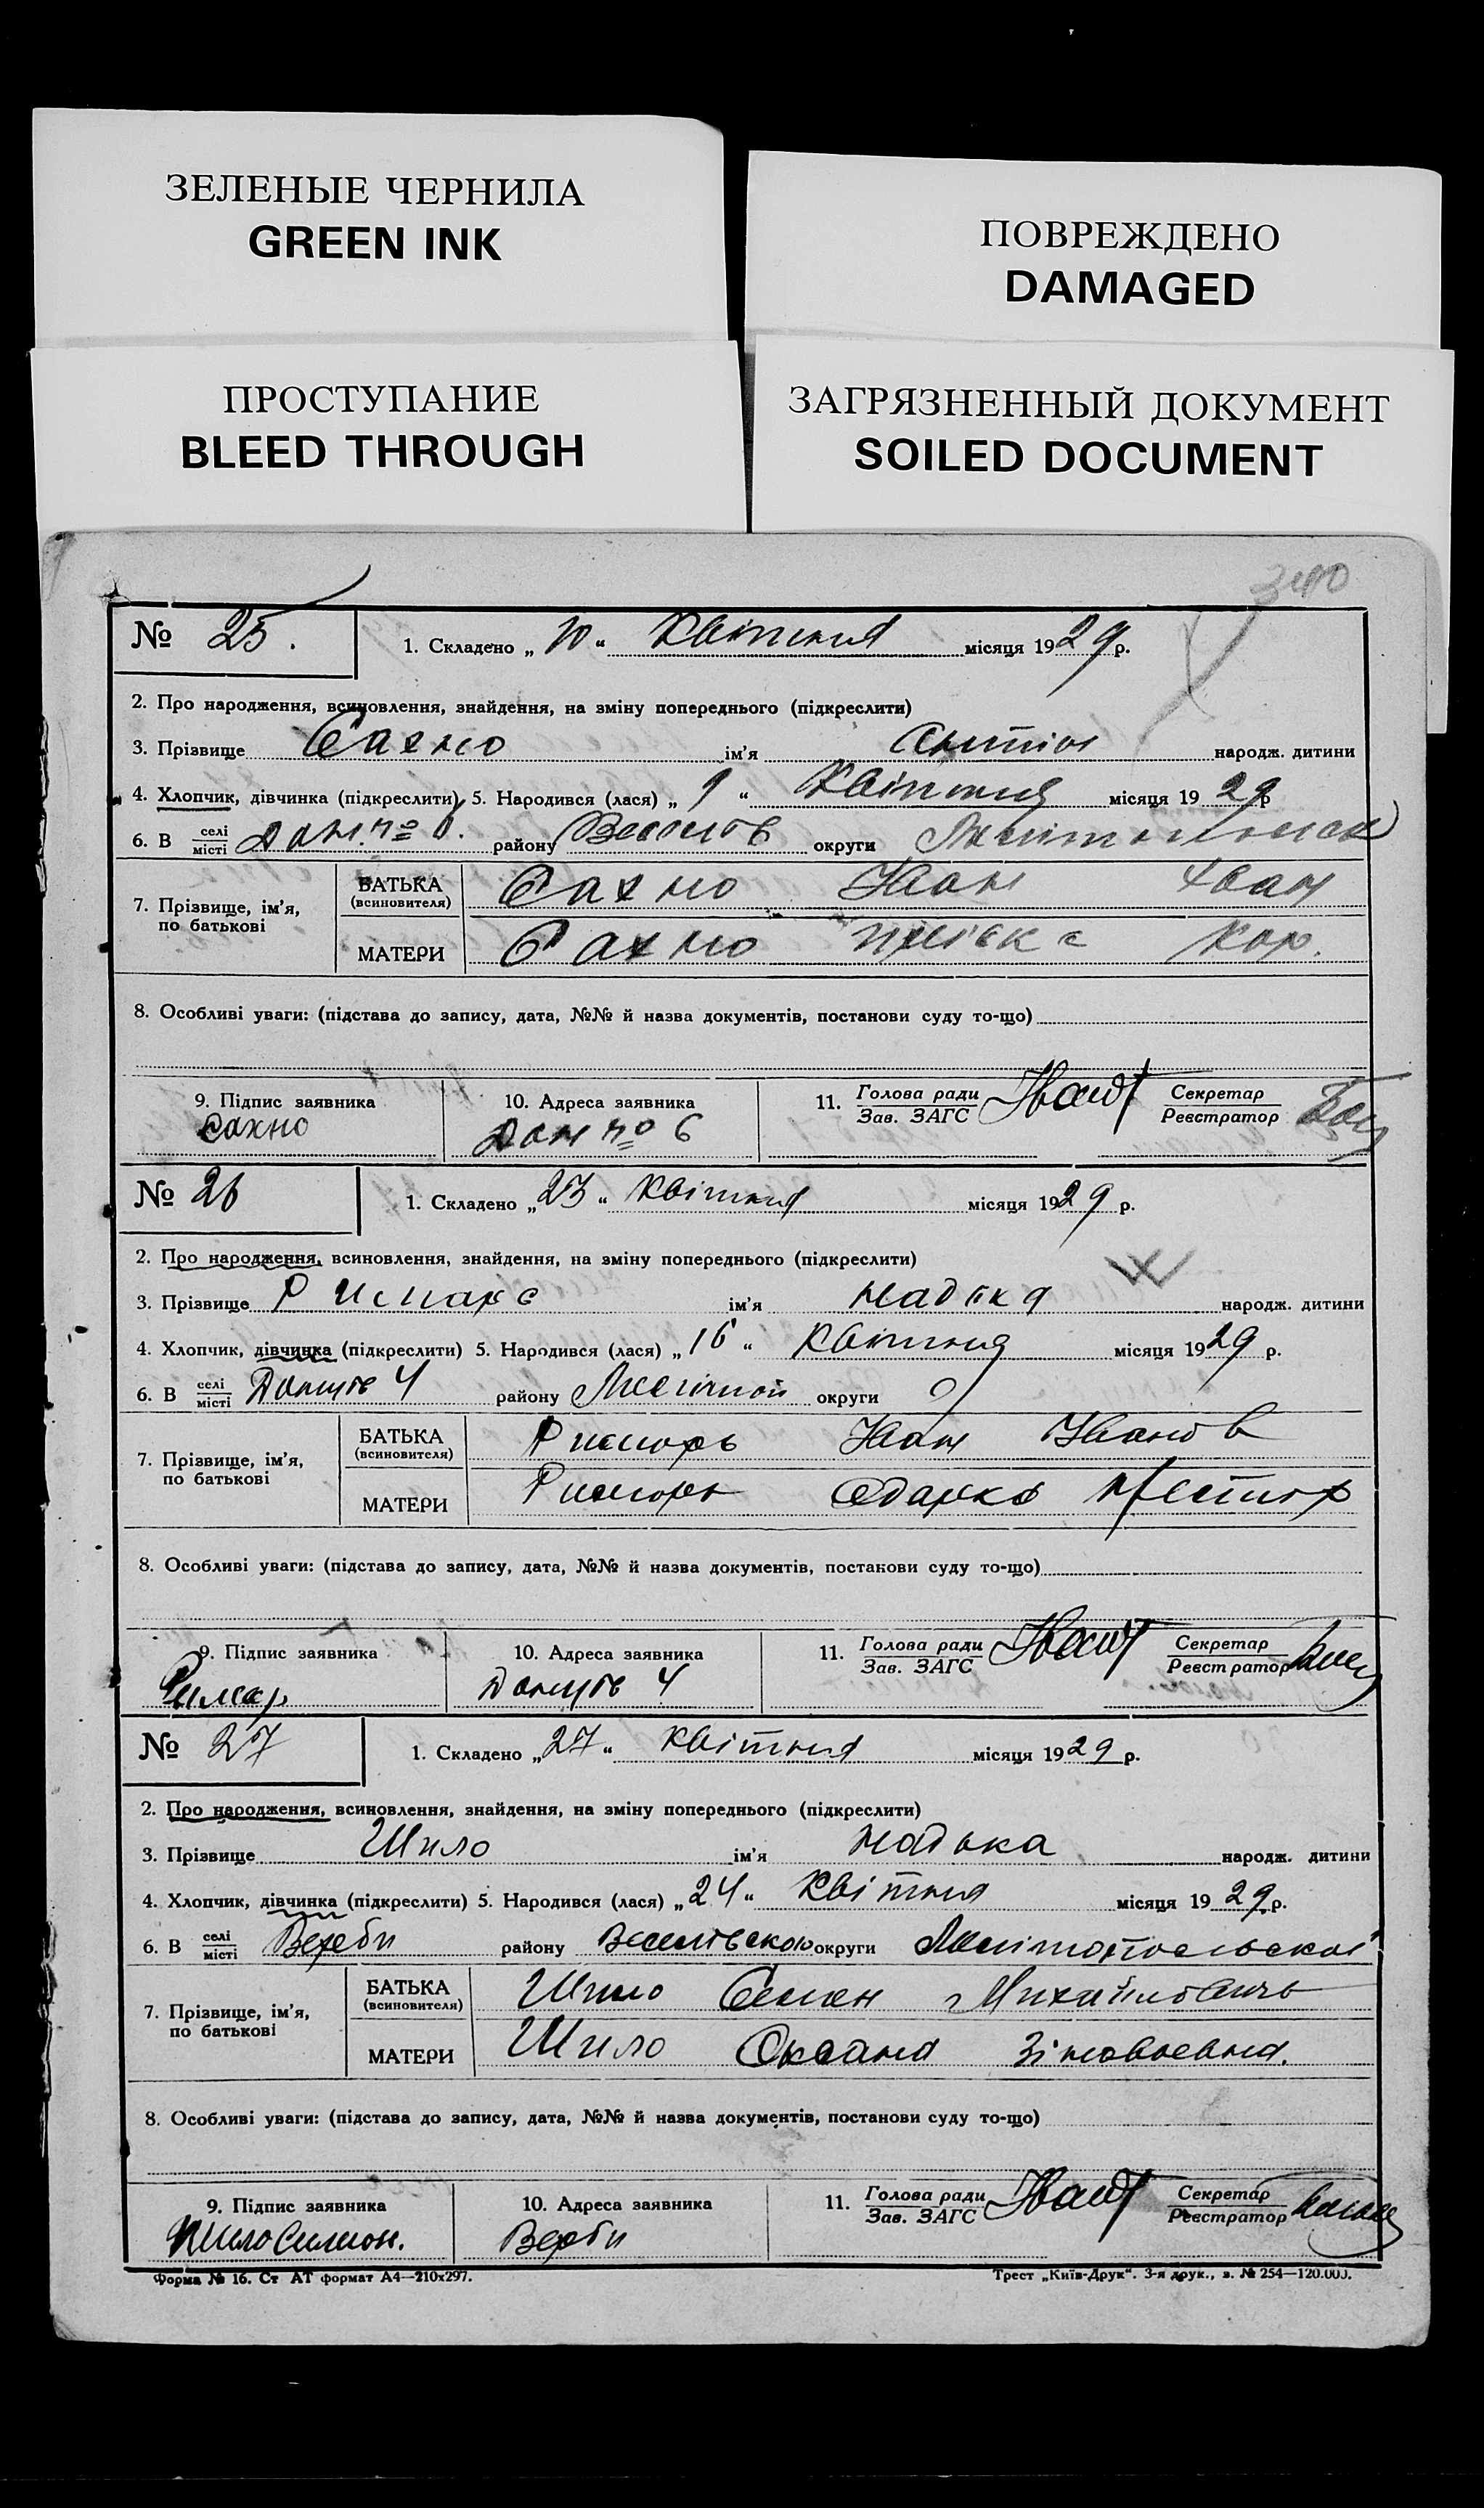 ЗЕЛЕНЫЕ ЧЕРНИЛА
GREEN INK
ПОВРЕЖДЕНО
DAMAGED
ПРОСТУПАНИЕ
BLEED THROUGH
ЗАГРЯЗНЕННЫЙ ДОКУМЕНТ
SOILED DOCUMENT
340
№ 25. 1. Складено „10“ Квітния місяця 1929 р.
2. Про народження, всиновлення, знайдення, на зміну попереднього (підкреслити)
3. Прізвище Сахно ім'я народж. дитини
4. Хлопчик, дівчинка (підкреслити) 5. Народився (лася) „9“ Квітния місяця 1929 р
6. В селі місті району округи
7. Прізвище, ім'я, по батькові БАТЬКА (всиновителя) Сахно Иван Иван
МАТЕРИ Сахно Кор.
8. Особливі уваги: (підстава до запису, дата, №№ й назва документів, постанови суду то-що)
9. Підпис заявника 10. Адреса заявника 11. Голова ради Зав. ЗАГС Секретар Реєстратор
Сахно № 6
№ 26 1. Складено „23“ Квітния місяця 1929 р.
2. Про народження, всиновлення, знайдення, на зміну попереднього (підкреслити)
3. Прізвище ім'я Надька народж. дитини
4. Хлопчик, дівчинка (підкреслити) 5. Народився (лася) „16“ Квітния місяця 1929 р.
6. В селі місті 4 району округи
7. Прізвище, ім'я, по батькові БАТЬКА (всиновителя) Иван Иванов
МАТЕРИ Одарка Нестор
8. Особливі уваги: (підстава до запису, дата, №№ й назва документів, постанови суду то-що)
9. Підпис заявника 10. Адреса заявника 11. Голова ради Зав. ЗАГС Секретар Реєстратор
Римар 4
№ 27 1. Складено „27“ Квітния місяця 1929 р.
2. Про народження, всиновлення, знайдення, на зміну попереднього (підкреслити)
3. Прізвище Шило ім'я Надька народж. дитини
4. Хлопчик, дівчинка (підкреслити) 5. Народився (лася) „24“ Квітния місяця 1929 р.
6. В селі місті Верби району Веселівского округи Мелітопольскої
7. Прізвище, ім'я, по батькові БАТЬКА (всиновителя) Шило Семен Михайлович
МАТЕРИ Шило Оксана Зіновьевна.
8. Особливі уваги: (підстава до запису, дата, №№ й назва документів, постанови суду то-що)
9. Підпис заявника 10. Адреса заявника 11. Голова ради Зав. ЗАГС Секретар Реєстратор
Шило Верби
Форма № 16. Ст АТ формат А4—210х297. Трест „Київ-Друк“. 3-я друк., з. № 254—120.000.